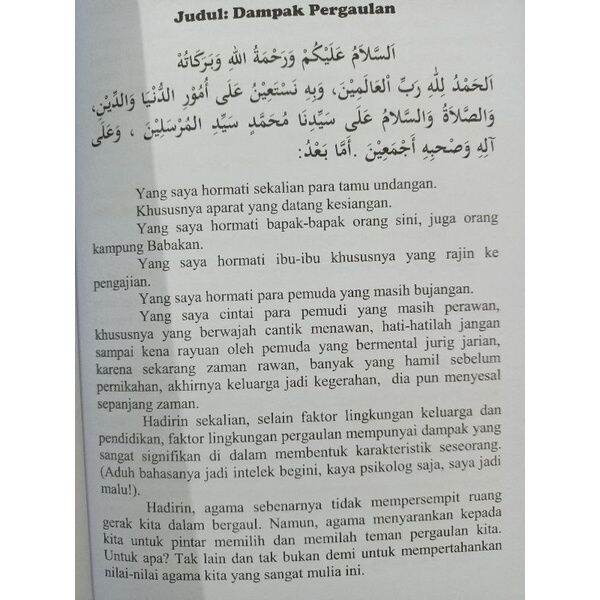 Judul: Dampak Pergaulan
اَلسَّلاَمُ عَلَيْكُمْ وَرَحْمَةُ اللهِ وَبَرَكَاتُهُ
اَلحَمْدُ لِلّٰهِ رَبِّ اْلعَالَمِيْنَ، وَبِهِ نَسْتَعِيْنُ عَلَى أُمُوْرِ الدُّنْيَا وَالدِّيْنِ،
وَالصَّلاَةُ وَالسَّلاَمُ عَلَى سَيِّدِنَا مُحَمَّدٍ سَيِّدِ المُرْسَلِيْنَ ، وَعَلَى
آلِهِ وَصَحْبِهِ أَجْمَعِيْنَ .أَمَّا بَعْدُ:
Yang saya hormati sekalian para tamu undangan.
Khususnya aparat yang datang kesiangan.
Yang saya hormati bapak-bapak orang sini, juga orang
kampung Babakan.
Yang saya hormati ibu-ibu khususnya yang rajin ke
pengajian.
Yang saya hormati para pemuda yang masih bujangan.
Yang saya cintai para pemudi yang masih perawan,
khususnya yang berwajah cantik menawan, hati-hatilah jangan
sampai kena rayuan oleh pemuda yang bermental jurig jarian,
karena sekarang zaman rawan, banyak yang hamil sebelum
pernikahan, akhirnya keluarga jadi kegerahan, dia pun menyesal
sepanjang zaman.
Hadirin sekalian, selain faktor lingkungan keluarga dan
pendidikan, faktor lingkungan pergaulan mempunyai dampak yang
sangat signifikan di dalam membentuk karakteristik seseorang.
(Aduh bahasanya jadi intelek begini, kaya psikolog saja, saya jadi
malu!).
Hadirin, agama sebenarnya tidak mempersempit ruang
gerak kita dalam bergaul. Namun, agama menyarankan kepada
kita untuk pintar memilih dan memilah teman pergaulan kita.
Untuk apa? Tak lain dan tak bukan demi untuk mempertahankan
nilai-nilai agama kita yang sangat mulia ini.